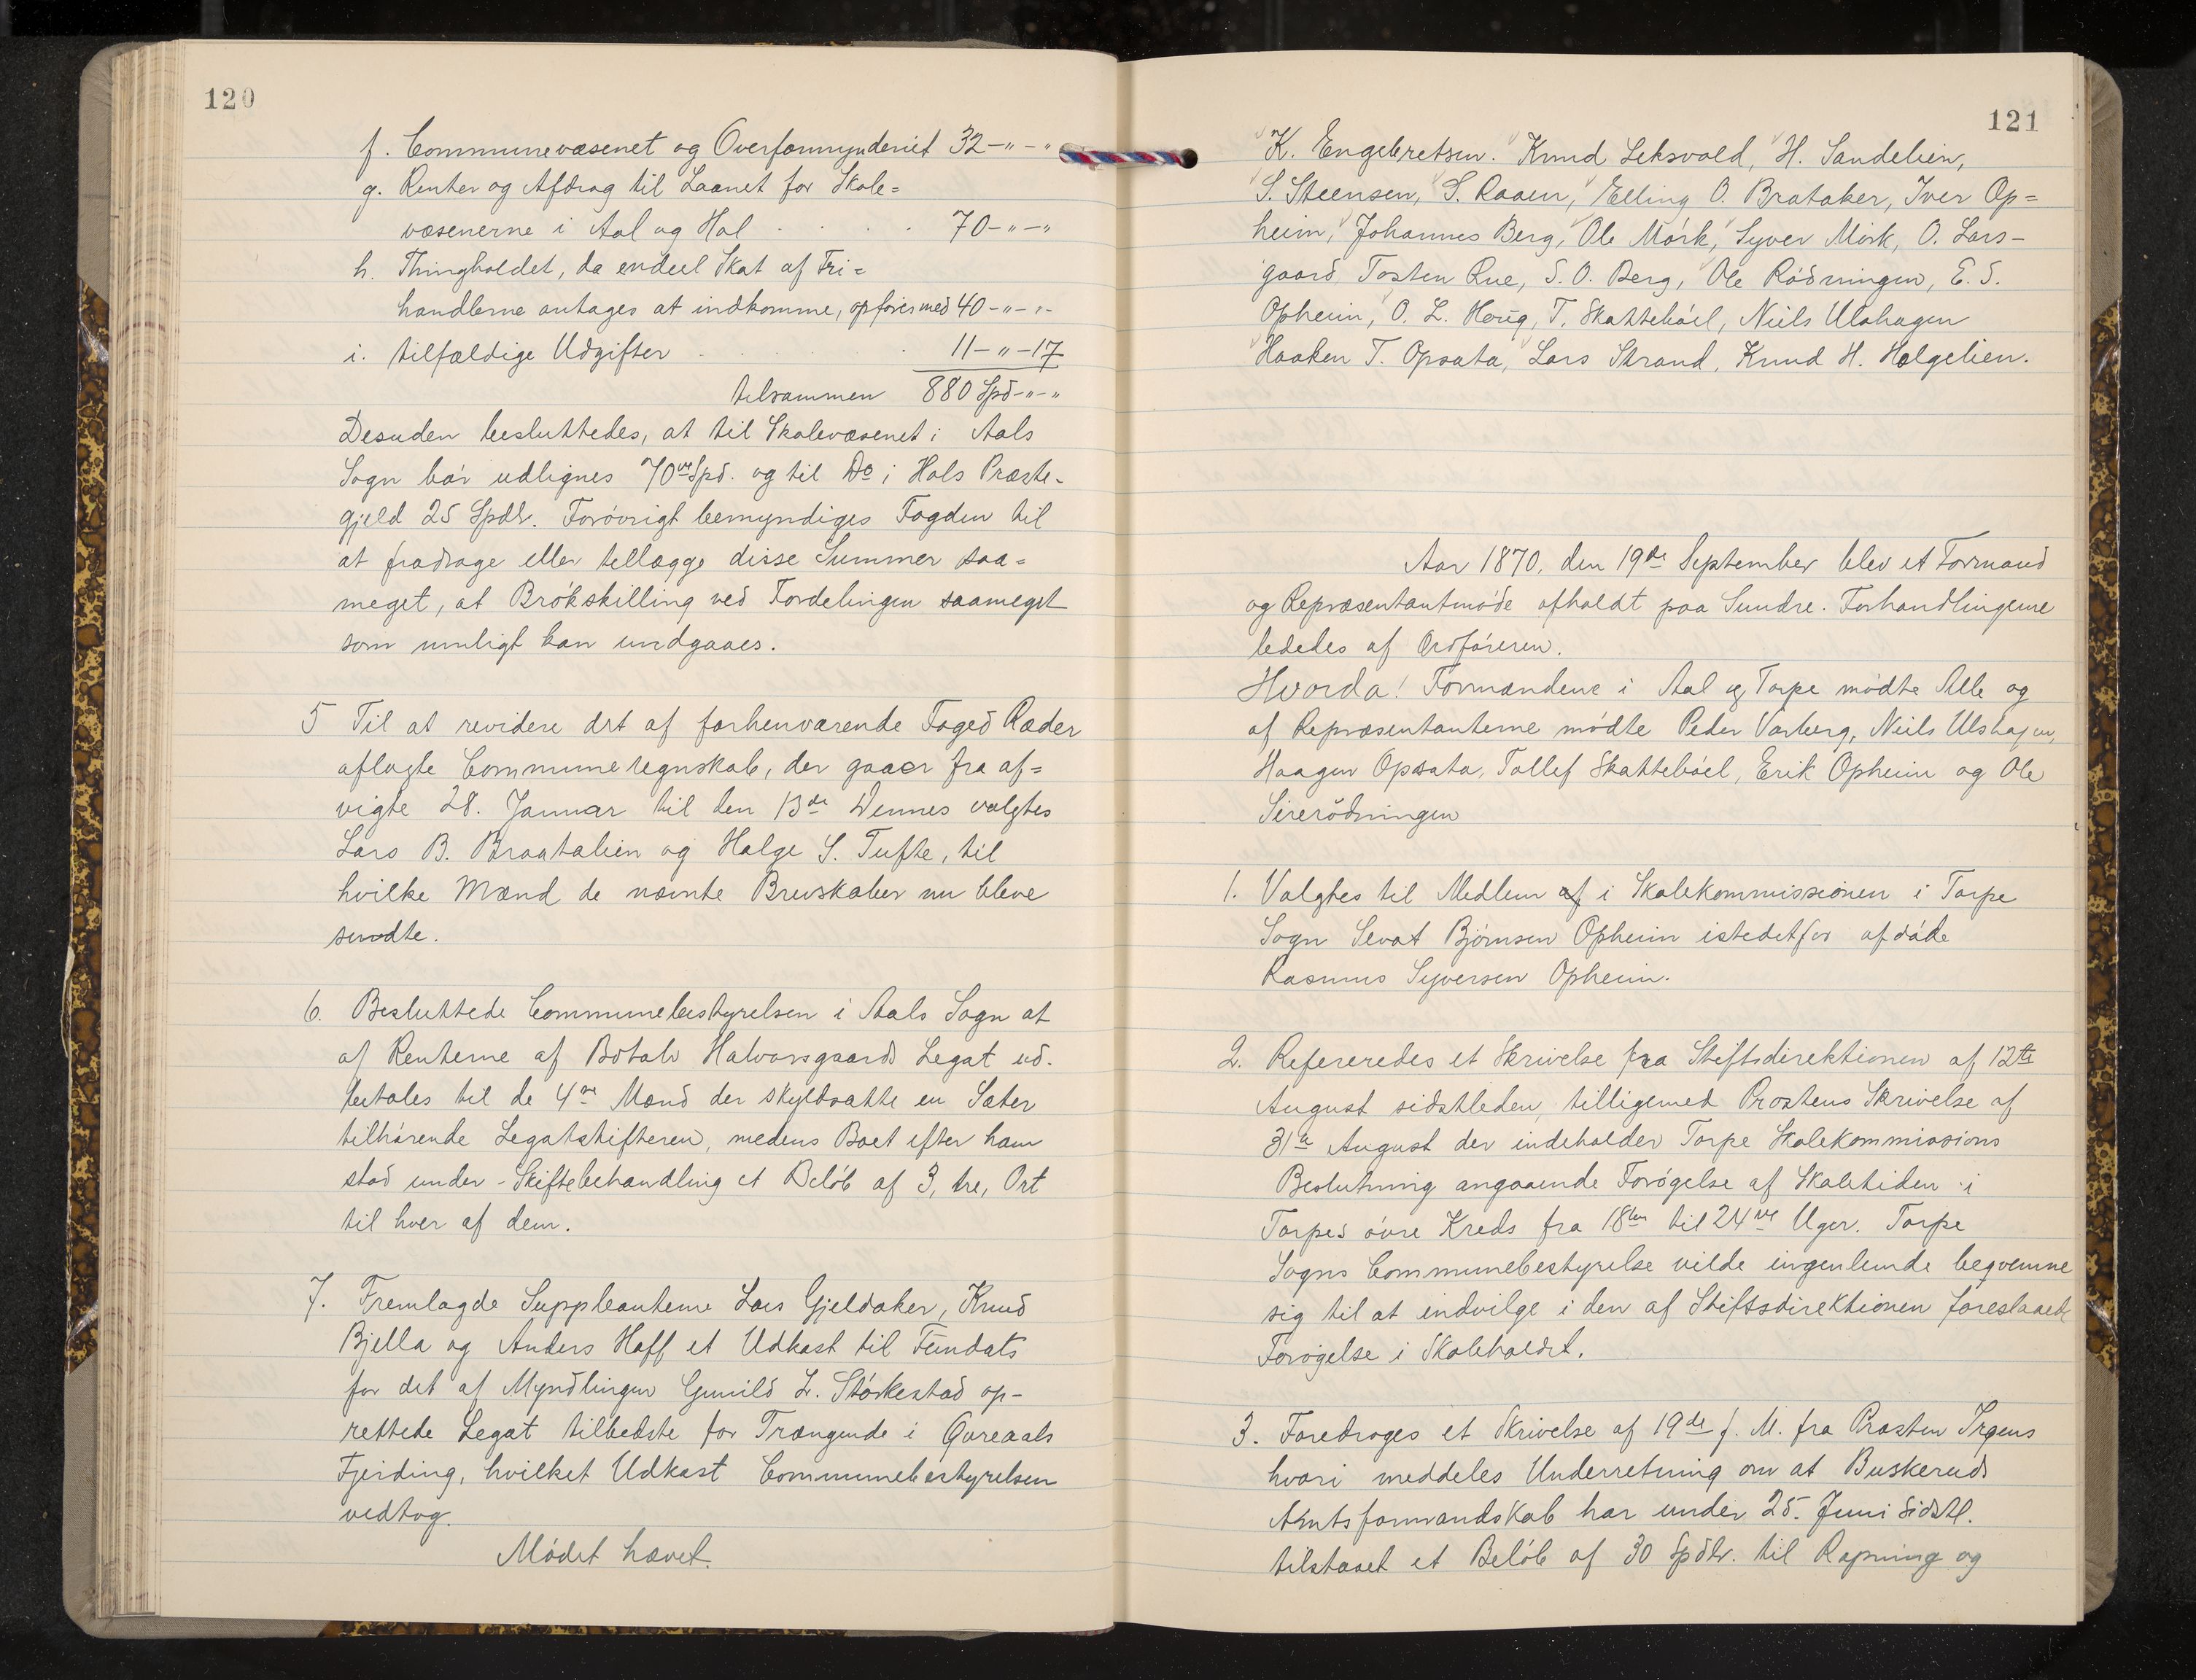 120
f. Communevæsenet og Overformynderiet 32-"-"
g. Renter og Afdrag til Laanet for Skole=
væsenerne i Aal og Hol . . . . 70-"-"
h. Thingholdet, da endeel Skat af Fri=
handlerne antages at indkomme, opføres med 40-"-"-
i. tilfældige Udgifter . . . 11-"-17
tilsammen 880 Spd-"-"
Desuden besluttedes, at til Skolevæsenet i Aals
Sogn bør udlignes 70ve Spd. og til Do i Hols Præste-
gjeld 25 Spdlr. Forøvrigt bemyndiges Fogden til
at fradrage eller tellægge disse Summer saa=
meget, at Brökskilling ved Fordelingen saameget
som muligt kan undgaaes.
5 Til at revidere det af forhenværende Foged Ræder
aflagte Communeregnskab, der gaaer fra af=
vigte 28. Januar til den 13de Dennes valgtes
Lars B. Braatalien og Holge S. Tufte, til
hvilke Mænd de nævnte Brevskaber nu bleve
sendte.
6. Besluttede Communebestyrelsen i Aals Sogn at
af Renterne af Botolv Halvorsgaards Legat ud-
betales til de 4re Mænd der skyldsatte en Sæter
tilhørende Legatstifteren, medens Boet efter ham
stod under-Skiftebehandling et Beløb af 3, tre, Ort
til hver af dem.
7. Fremlagde Suppleanterne Lars Gjeldaker, Knud
Bjella og Anders Hoff et Udkast til Fundats
for det af Myndlingen Gunild L. Störkestad op-
rettede Legat tilbedste for Trængende i Qvreaals
Fjerding, hvilket Udkast Communebestyrelsen
vedtog.
Mödet hævet.
121
K. Engebretsen. Knud Leksvold, H. Sandelien,
S. Steensen, S. Raaen, Elling O. Brataker, Iver Op=
heim, Johannes Berg, Ole Mörk, Syver Mörk, O. Lars-
gaard, Tosten Rue, S. O. Berg, Ole Rödningen, E. S.
Opheim, O. L. Houg, T. Skatteböel, Niels Ulshagen
Haaken T. Opsata, Lars Strand, Knud H. Holgelien.
Aar 1870, den 19de September blev et Formand
og Repræsentantmöde afholdt paa Sundre. Forhandlingerne
lededes af Ordföreren.
Hvorda! Formændene i Aal og Torpe mödte Alle og
af Repræsentanterne mödte Peder Varberg, Niels Ulshagen,
Haagen Opsata, Tollef Skatteböel, Erik Opheim og Ole
Sirerödningen
1. Valgtes til Medlem af i Skolekommissionen i Torpe
Sogn Sevat Björnsen Opheim istedetfor afdöde
Rasmus Syversen Opheim.
2. Refereredes et Skrivelse fra Stiftsdirektionen af 12te
August sidstleden, tilligemed Prostens Skrivelse af
31te August der indeholder Torpe Skolekommissions
Beslutning angaaende Forögelse af Skoletiden i
Torpes övre Kreds fra 18ten til 24ve Uger. Torpe
Sogns Communebestyrelse vilde ingenlunde beqvemme
sig til at indvilge i den af Stiftsdirektionen foreslaaede
Forögelse i Skoleholdet.
3. Foredroges et Skrivelse af 19de f. M. fra Prosten Irgens
hvori meddeles Underretning om at Buskeruds
Amtsformandskab har under 25. Juni sidstl.
tilstaaet et Belöb af 30 Spdlr. til Rapning og